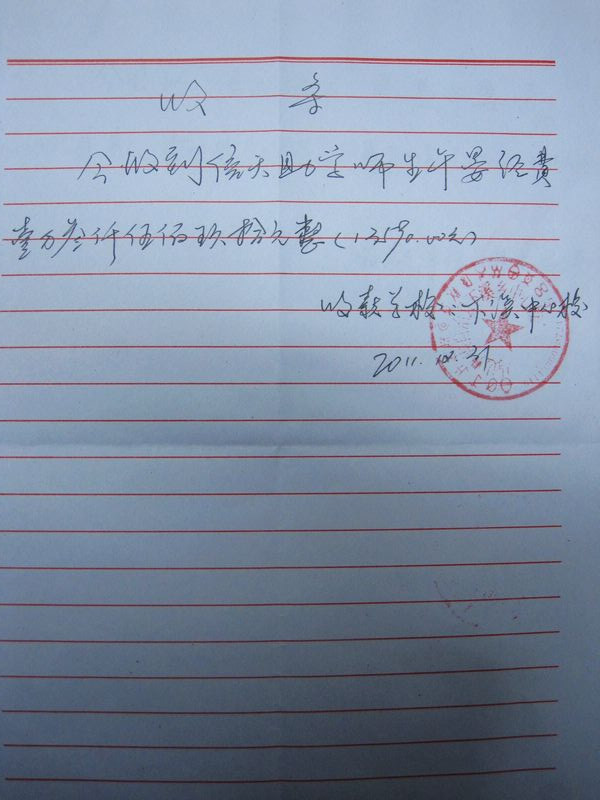 收 条
今收到信天助学师生午宴经费
壹万叁仟伍佰玖拾元整(13590.00元)
收款学校：下溪中心校
2011. 10. 31